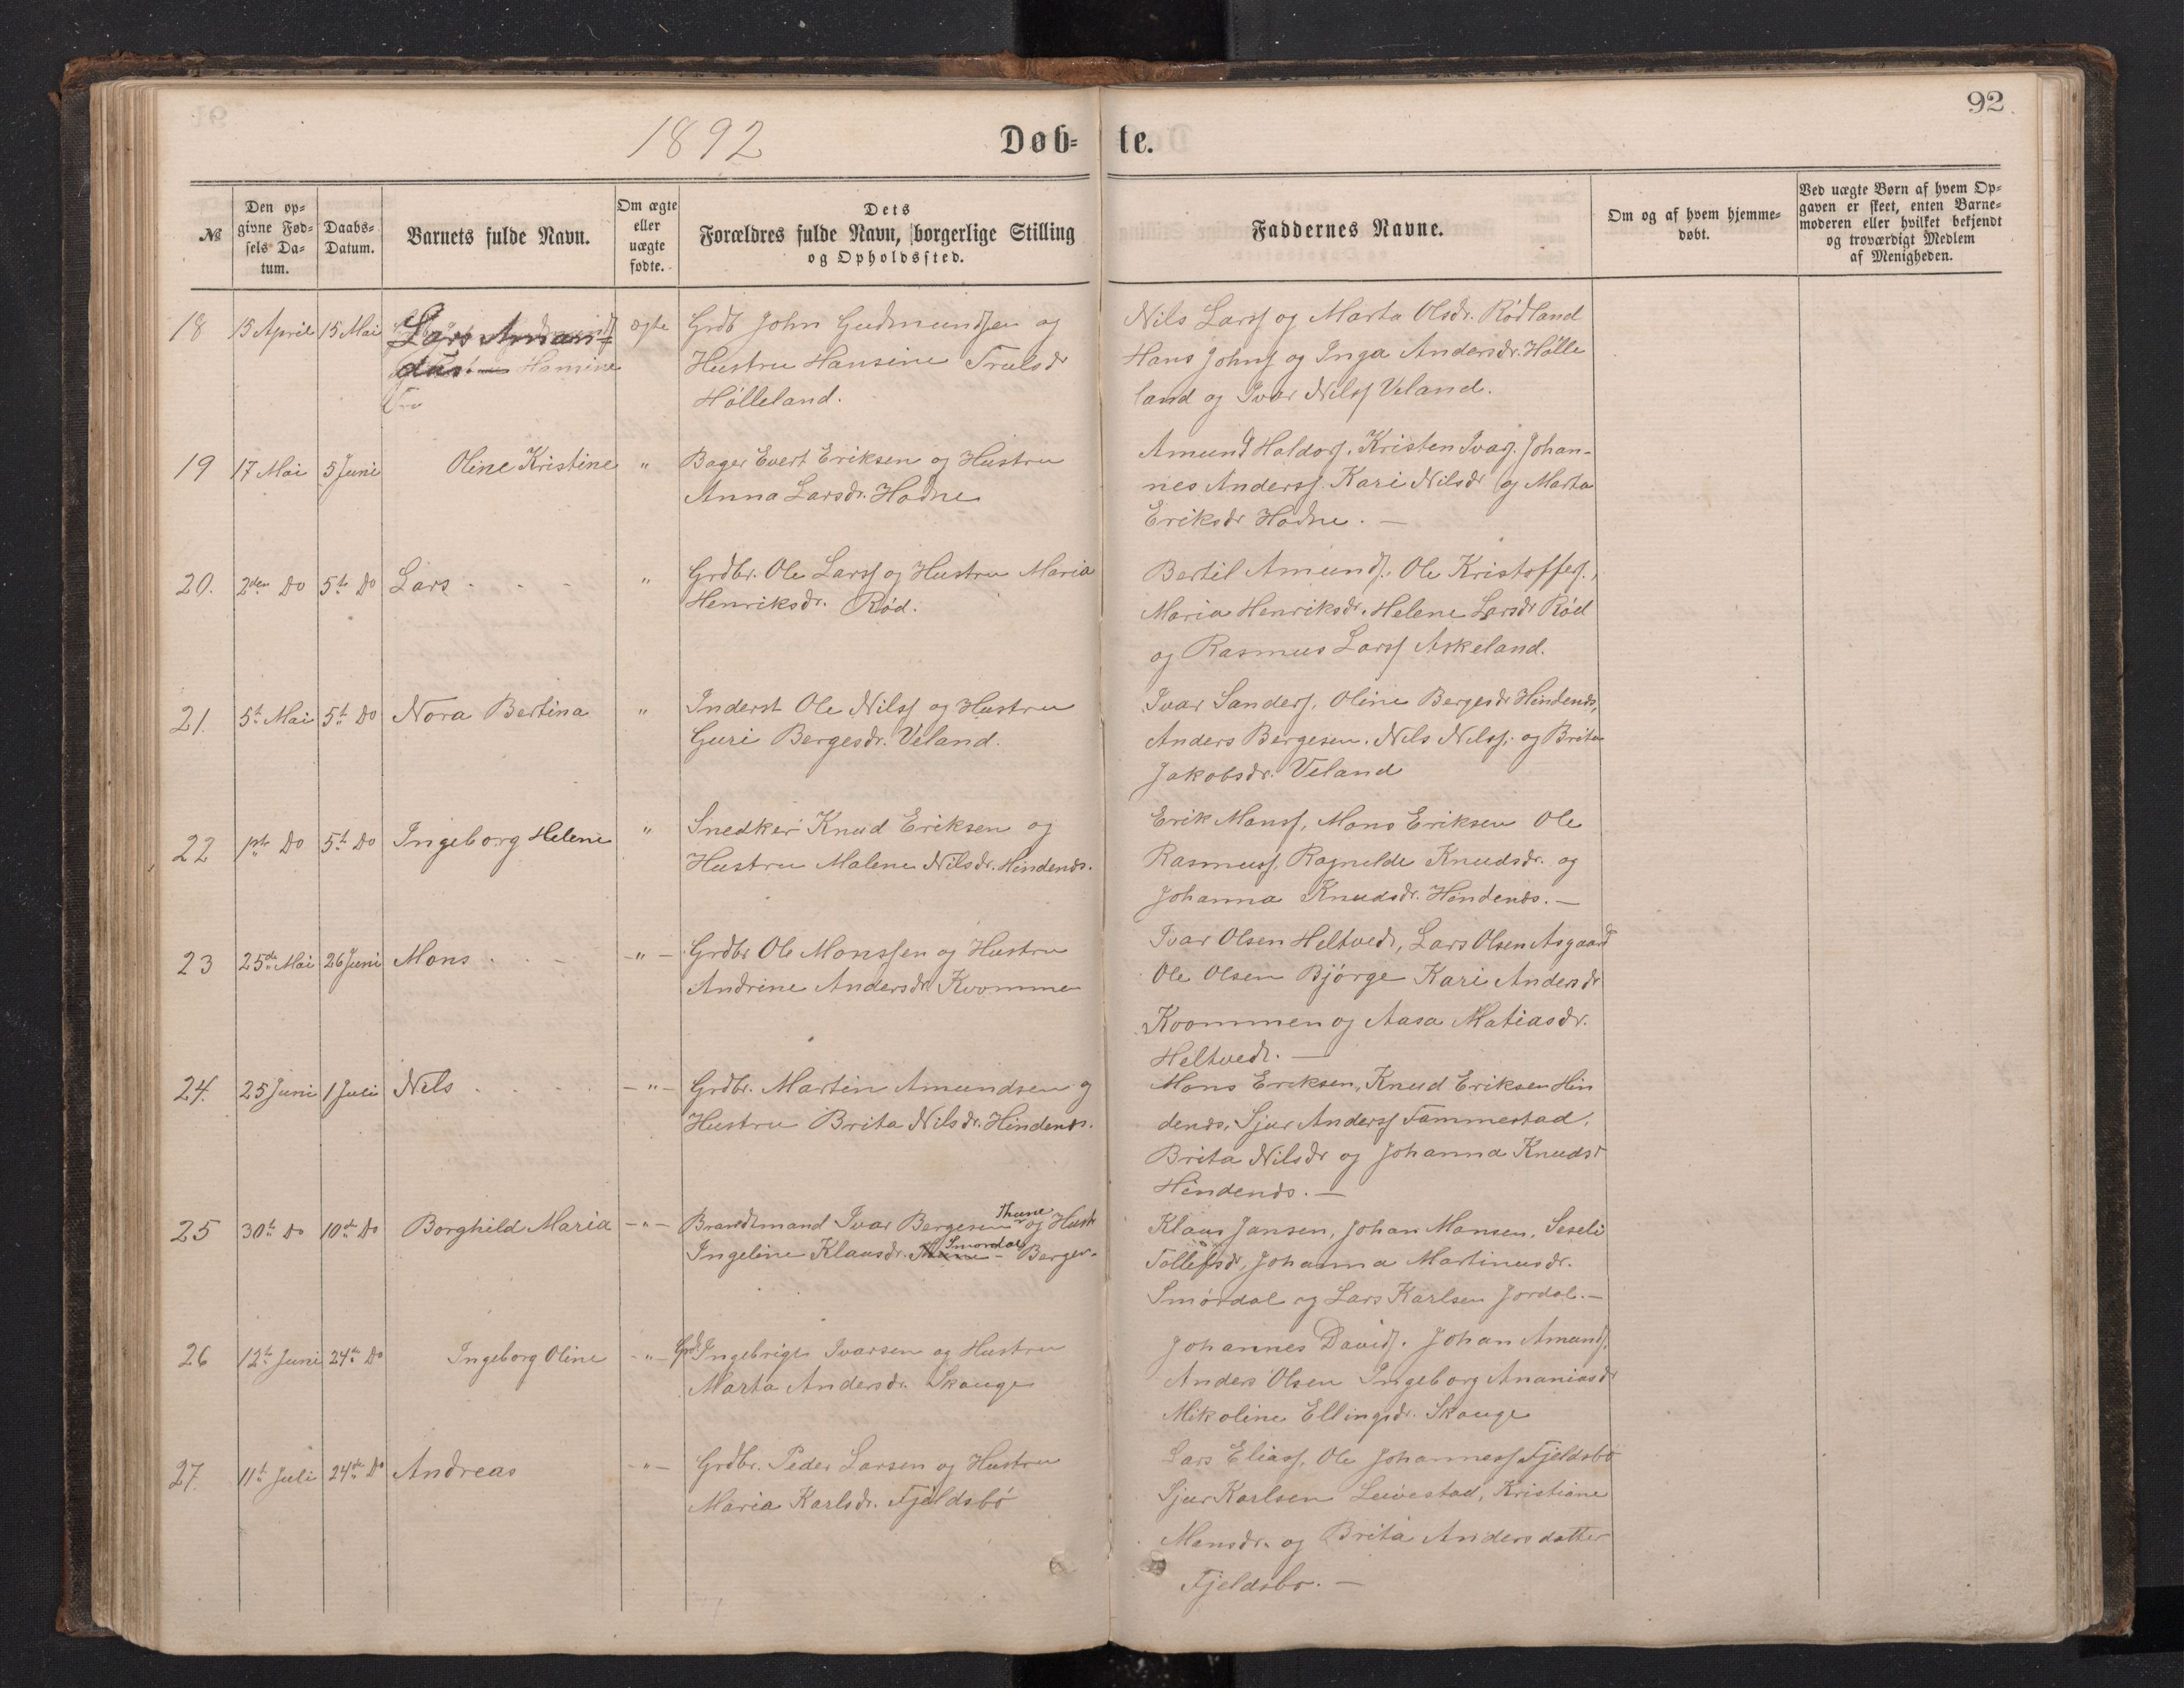 92
1892
Døb-
te.
№
Den op-
givne Fød-
sels Da-
tum.
Daabs-
Datum.
Barnets fulde Navn.
Om ægte
eller
uægte
fødte.
Dets
Forældres fulde Navn, borgerlige Stilling
og Opholdssted.
Faddernes Navne.
Om og af hvem hjemme-
døbt.
Ved uægte Børn af hvem Op-
gaven er skeet, enten Barne-
moderen eller hvilket bekjendt
og troværdigt Medlem
af Menigheden.
18 15 April 15 Mai Lars ægte Grdb John Gudmundsen og
Hustru Hansine Trulsdr
Hölleland.
Nils Larss og Marta Olsdr. Rödland
Hans Johns og Inga Andersdr. Hölle
land og Ivar Nilss Veland.
19 17 Mai 5 Juni Oline Kristine " Bager Evert Eriksen og Hustru
Anna Larsdr. Hodne
Amund Haldors. Kristen Ivars. Johan-
nes Anderss. Kari Nilsdr og Marta
Eriksdr Hodne. —
20. 2den Do 5te Do Lars - - - " Grdbr. Ole Larss og Hustru Maria
Henriksdr. Röd.
Bertil Amunds. Ole Kristoffers.,
Maria Henriksdr. Helene Larsdr Röd
og Rasmus Larss Askeland.
21. 5te Mai 5te Do Nora Bertina " Inderst Ole Nilss og Hustru
Guri Bergesdr. Veland.
Ivar Sanders, Oline Bergesdr Hindenes,
Anders Bergesen. Nils Nilss. og Brita
Jakobsdr. Veland
22 1ste Do 5te Do Ingeborg Helene " Snedker Knud Eriksen og
Hustru Malene Nilsdr. Hindenes.
Erik Monss, Mons Eriksen Ole
Rasmuss, Ragnilde Knudsdr. og
Johanna Knudsdr. Hindenes. —
23 25de Mai 26 Juni Mons - - - - " - Grdbr Ole Monssen og Hustru
Andrine Andersdr. Kvomme
Ivar Olsen Heltvedt, Lars Olsen Asgaard
Ole Olsen Bjórge Kari Andersdr
Kvommen og Aasa Matiasdr.
Heltvedt. —
24. 25 Juni 1 Juli Nils - - - - " - Grdbr. Martin Amundsen og
Hustru Brita Nilsdr. Hindenes.
Mons Eriksen, Knud Eriksen Hin
denes, Sjur Anderss Tammestad,
Brita Nilsdr og Johanna Knudsdr
Hindenes. —
25 30te Do 10de Do Borghild Maria - " - Brandtmand Ivar Bergesen Thune og Hustr
Ingeline Klausdr. Smørdal - Bergen.
Klaus Jansen, Johan Monsen, Seseli
Tollefsdr, Johanna Martinusdr.
Smördal og Lars Karlsen Jordal. —
26 12te Juni 24de Do Ingeborg Oline - " - Grd Ingebrigt Ivarsen og Hustru
Marta Andersdr. Skauge
Johannes Davids. Johan Amunds,
Anders Olsen Ingeborg Ananiasdr
Mikoline Ellingsdr. Skauge
27. 11te Juli 24de Do Andreas - " - Grdbr. Peder Larsen og Hustru
Maria Karlsdr. Fjeldsbó
Lars Eliass, Ole Johanness Fjeldsbo
Sjur Karlsen Leivestad, Kristiane
Monsdr. og Brita Andersdatter
Fjeldsbo. —